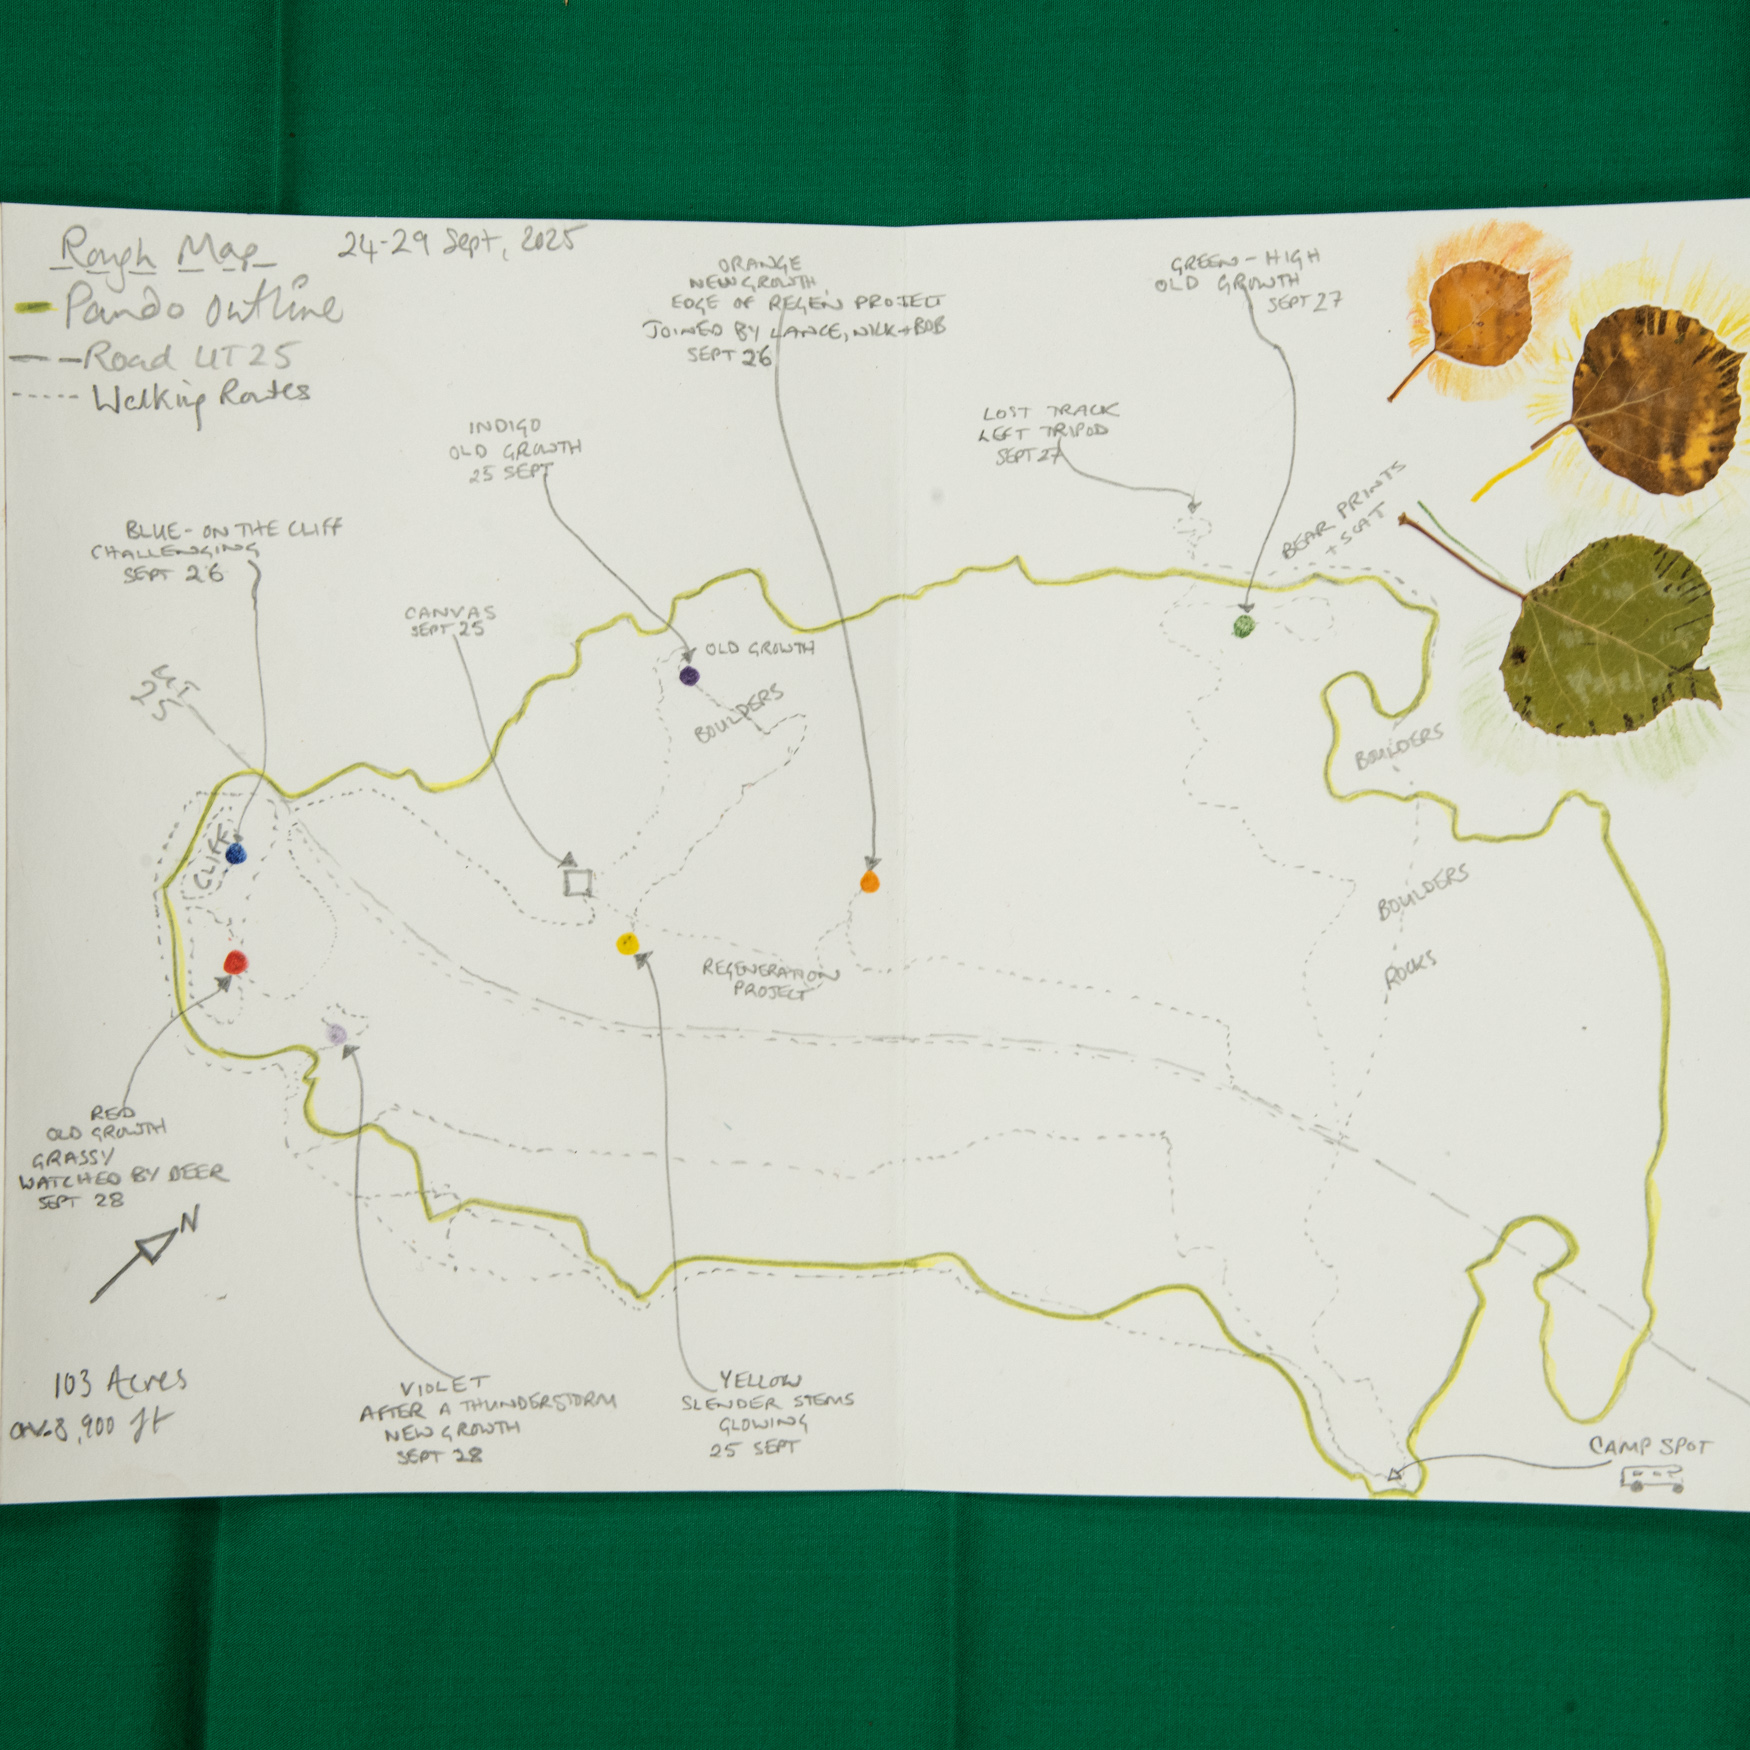 Rough Map
24-29 Sept, 2025
Pando outline
Road UT25
Walking Routes
ORANGE
NEW GROWTH
EDGE OF REGEN PROJECT
JOINED BY LANCE, NICK + BOB
SEPT 26
GREEN - HIGH
OLD GROWTH
SEPT 27
INDIGO
OLD GROWTH
25 SEPT
LOST TRACK
LEFT TRIPOD
SEPT 27
BEAR PRINTS
+ SCAT
BLUE - ON THE CLIFF
CHALLENGING
SEPT 26
CANVAS
SEPT 25
UT
25
OLD GROWTH
BOULDERS
BOULDERS
CLIFF
BOULDERS
ROCKS
REGENERATION
PROJECT
RED
OLD GROWTH
GRASSY
WATCHED BY DEER
SEPT 28
N
103 Acres
av. 8,900 ft
VIOLET
AFTER A THUNDERSTORM
NEW GROWTH
SEPT 28
YELLOW
SLENDER STEMS
GLOWING
25 SEPT
CAMP SPOT